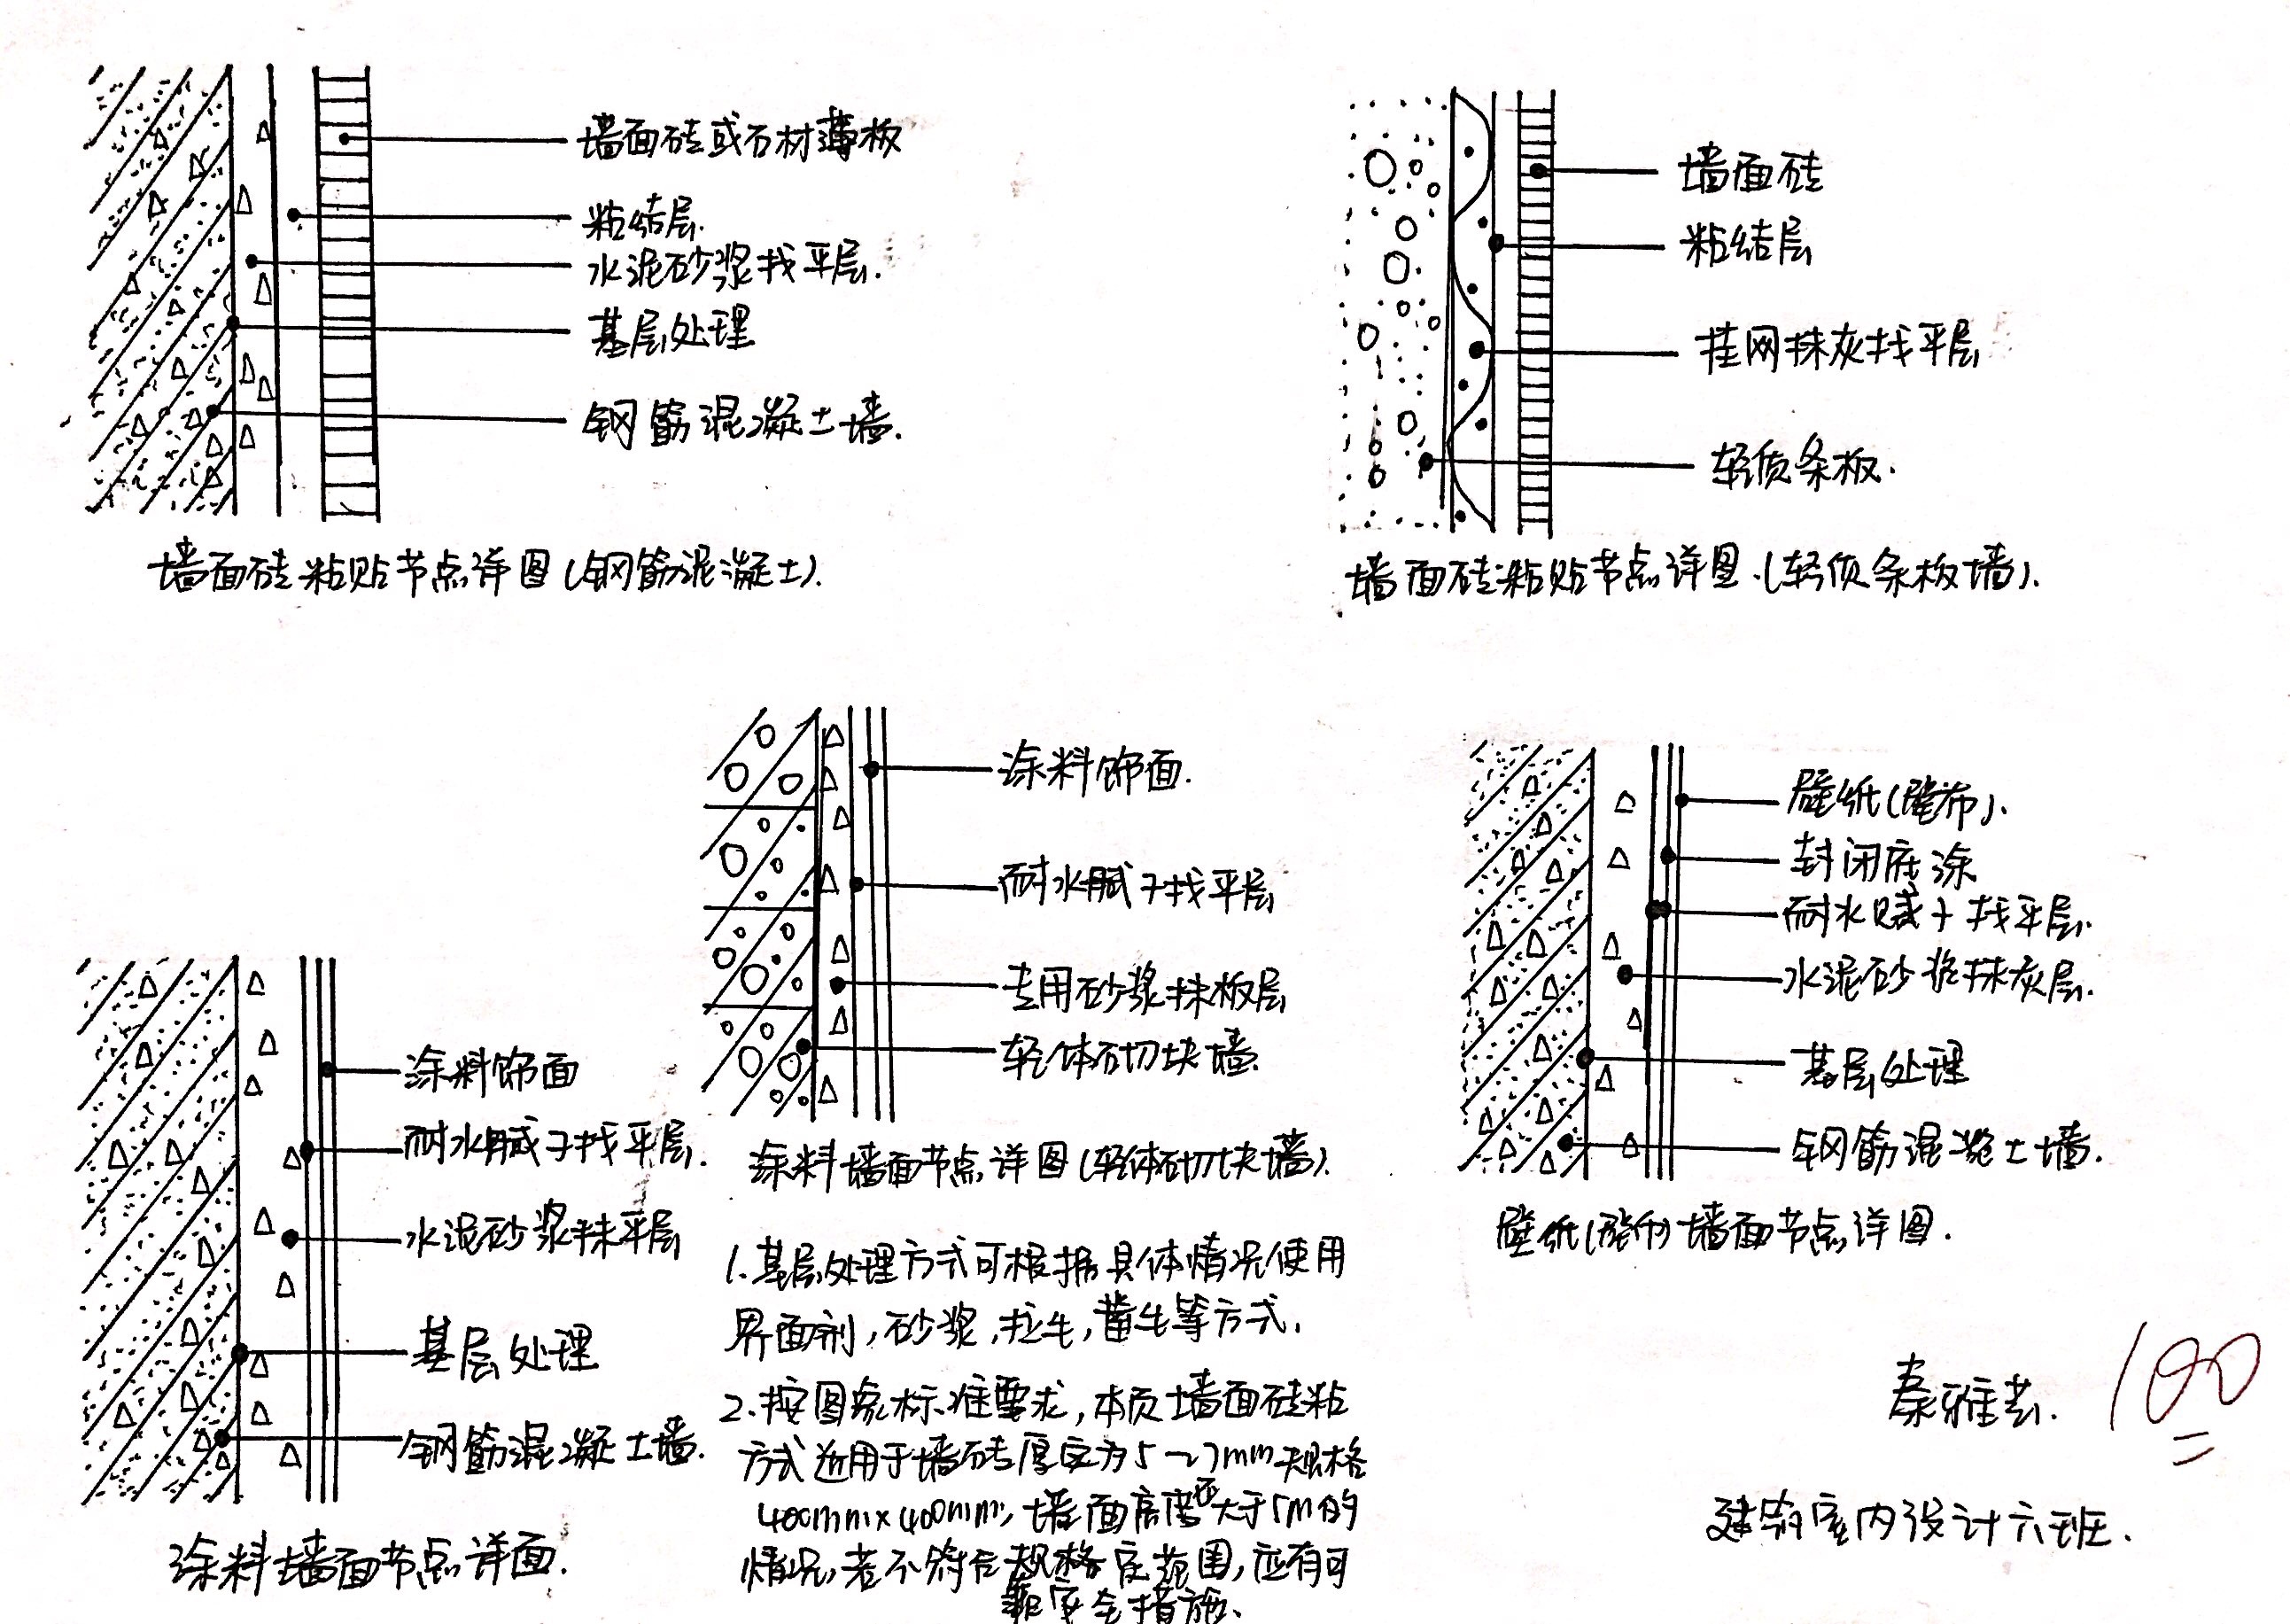 墙面砖或石材薄板
粘结层.
水泥砂浆找平层.
基层处理
钢筋混凝土墙.
墙面砖粘贴节点详图(钢筋混凝土).
墙面砖
粘结层
挂网抹灰找平层
轻质条板.
墙面砖粘贴节点详图.(轻质条板墙).
涂料饰面.
耐水腻子找平层
专用砂浆抹板层
轻体砌块墙.
涂料墙面节点详图(轻体砌块墙).
壁纸(壁布).
封闭底涂
耐水腻子找平层.
水泥砂浆抹灰层.
基层处理
钢筋混凝土墙.
壁纸(壁布)墙面节点详图.
涂料饰面
耐水腻子找平层.
水泥砂浆抹平层
基层处理
钢筋混凝土墙.
涂料墙面节点详面.
1.基层处理方式可根据具体情况使用
界面剂,砂浆,拉毛,凿毛等方式.
2.按图象标准要求,本页墙面砖粘
方式适用于墙砖厚度为5~7mm规格
400mm×400mm,墙面高度不大于5m的
情况,若不符合规格定范围,应有可
靠安全措施.
秦雅芸.
100
建筑室内设计六班.